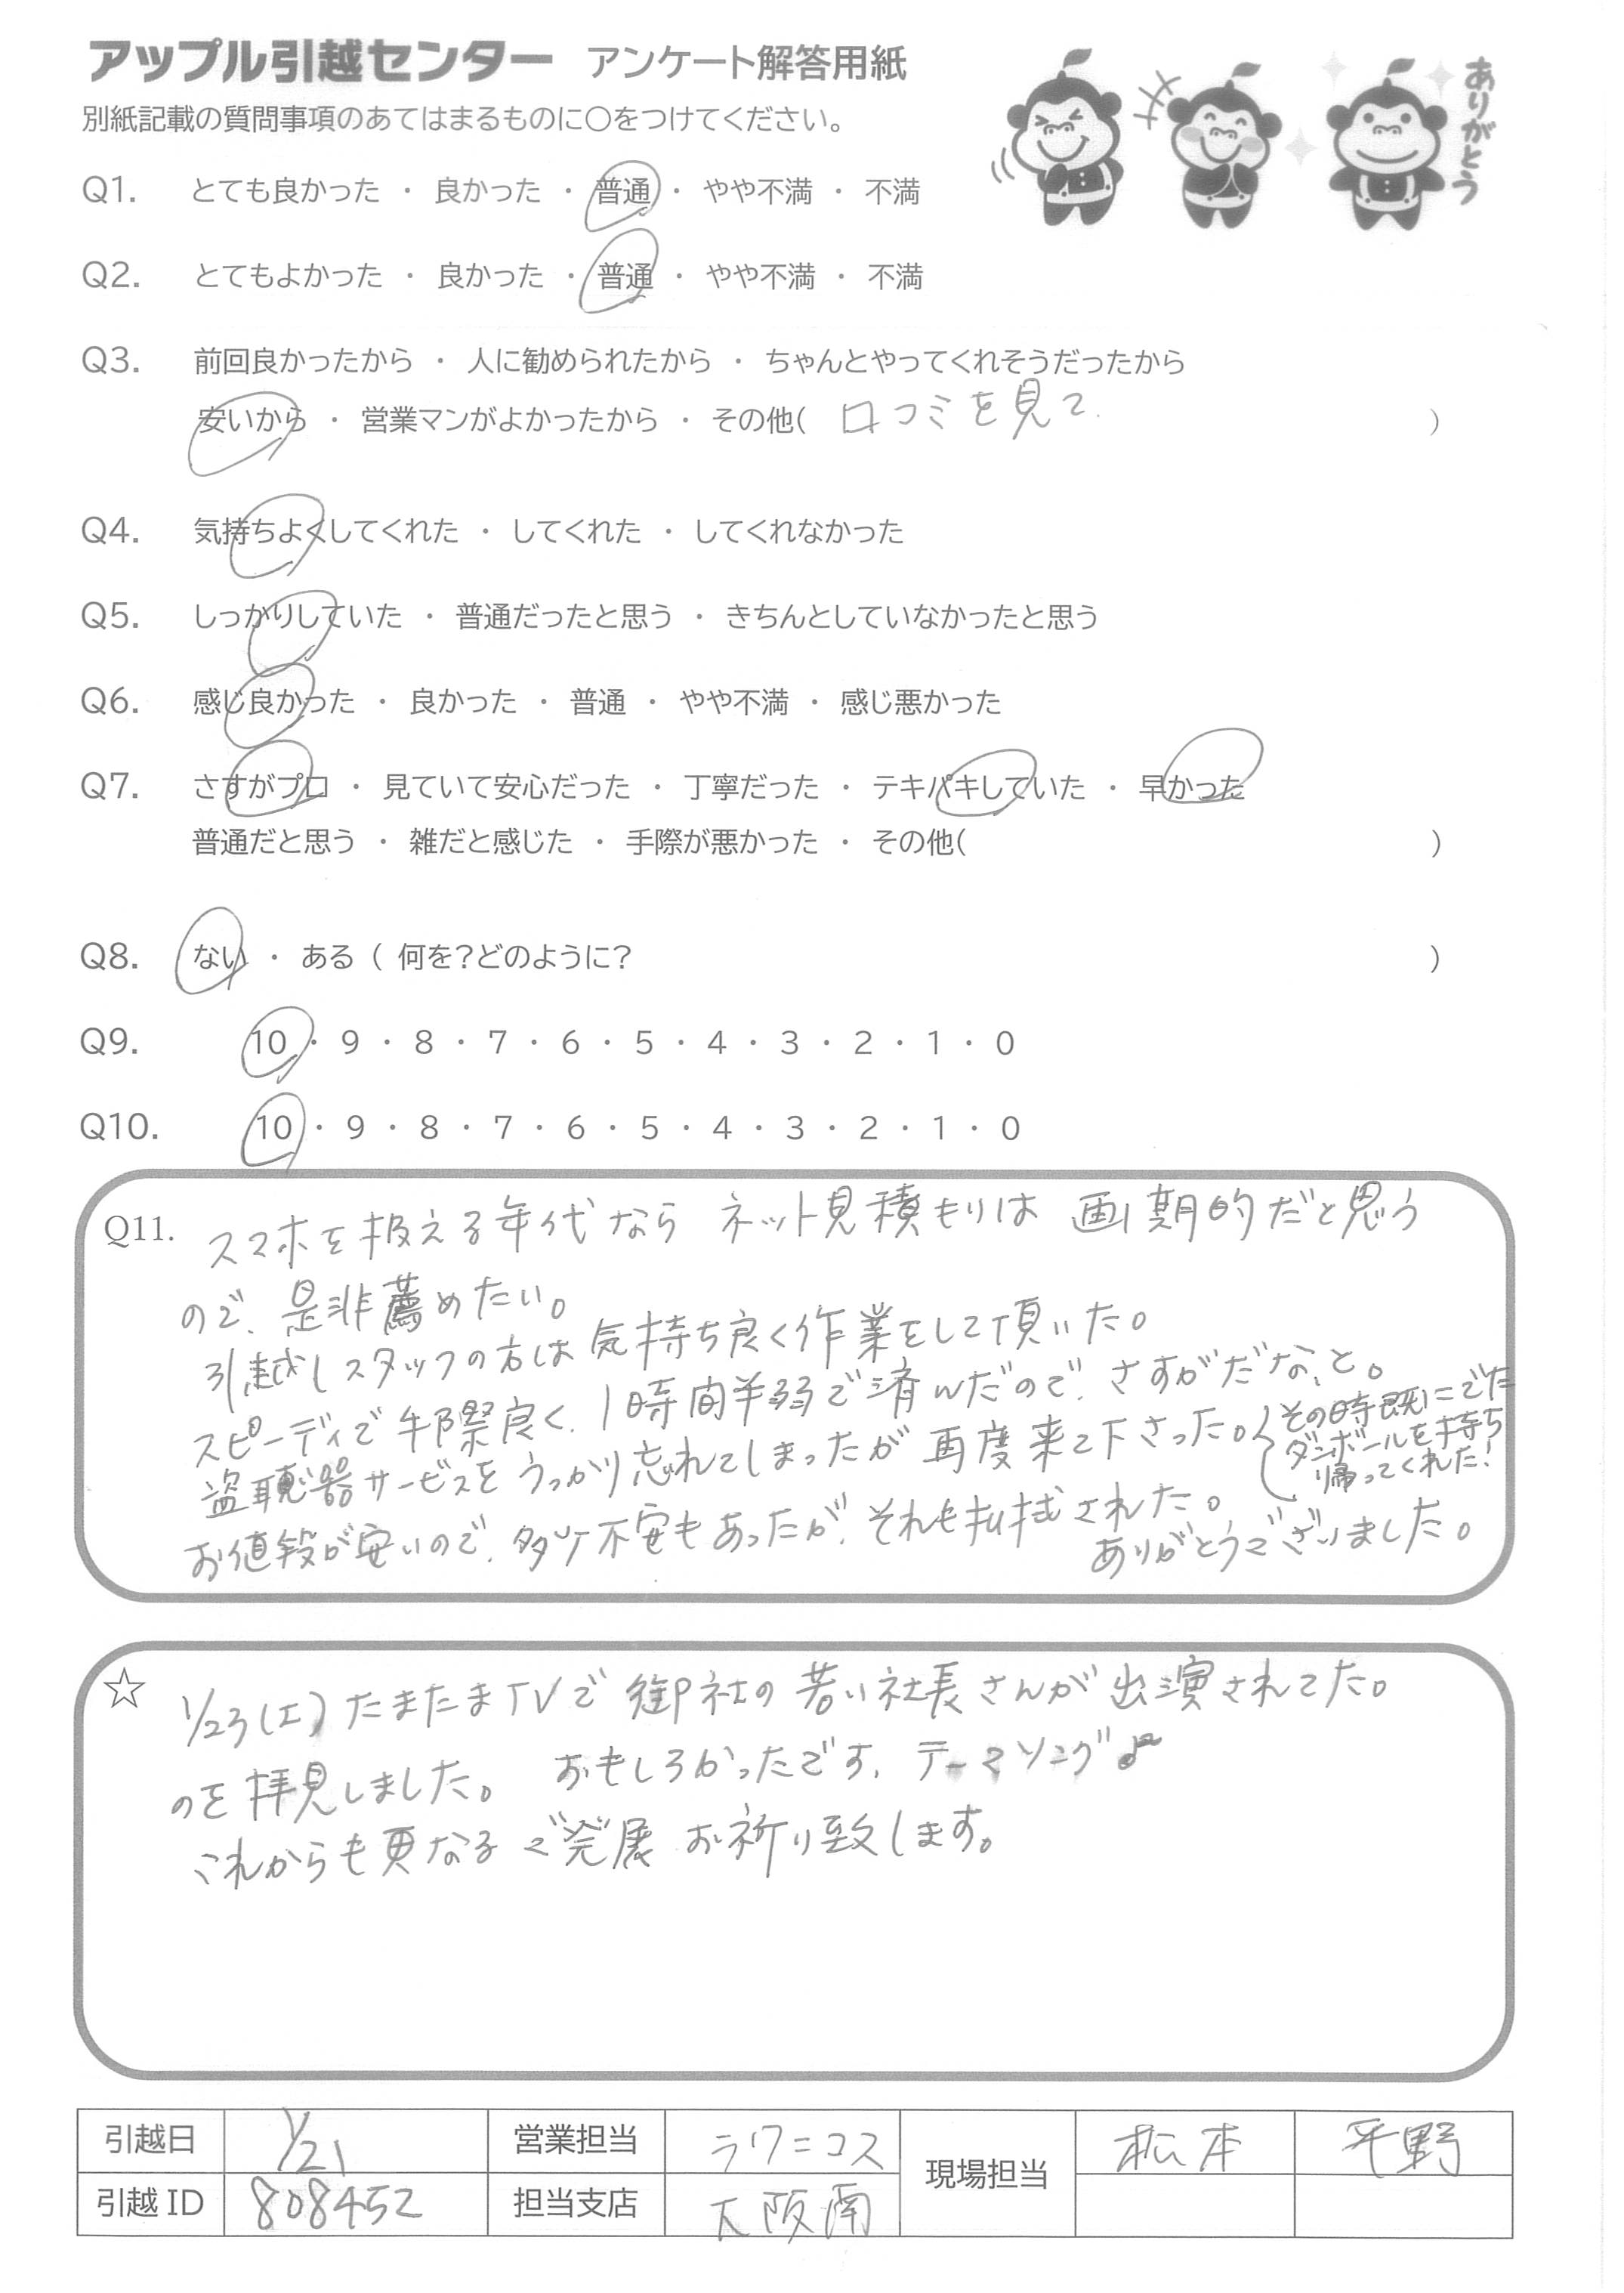 アップル引越センター アンケート解答用紙
別紙記載の質問事項のあてはまるものに〇をつけてください。
ありがとう
Q1. とても良かった ・ 良かった ・ 普通 ・ やや不満 ・ 不満
Q2. とてもよかった ・ 良かった ・ 普通 ・ やや不満 ・ 不満
Q3. 前回良かったから ・ 人に勧められたから ・ ちゃんとやってくれそうだったから
安いから ・ 営業マンがよかったから ・ その他( 口コミを見て. )
Q4. 気持ちよくしてくれた ・ してくれた ・ してくれなかった
Q5. しっかりしていた ・ 普通だったと思う ・ きちんとしていなかったと思う
Q6. 感じ良かった ・ 良かった ・ 普通 ・ やや不満 ・ 感じ悪かった
Q7. さすがプロ ・ 見ていて安心だった ・ 丁寧だった ・ テキパキしていた ・ 早かった
普通だと思う ・ 雑だと感じた ・ 手際が悪かった ・ その他( )
Q8. ない ・ ある ( 何を?どのように? )
Q9. 10 ・ 9 ・ 8 ・ 7 ・ 6 ・ 5 ・ 4 ・ 3 ・ 2 ・ 1 ・ 0
Q10. 10 ・ 9 ・ 8 ・ 7 ・ 6 ・ 5 ・ 4 ・ 3 ・ 2 ・ 1 ・ 0
Q11. スマホを扱える年代なら ネット見積もりは 画期的だと思う
ので、是非薦めたい。
引越しスタッフの方は気持ち良く作業をして頂いた。
スピーディで手際良く、1時間半弱で済んだので、さすがだな、と。
盗聴器サービスをうっかり忘れてしまったが再度来て下さった。
その時既にでた
ダンボールを持ち
帰ってくれた!
お値段が安いので、多少不安もあったが、それも払拭された。
ありがとうございました。
☆ 1/23(土)たまたまTVで 御社の若い社長さんが出演されてた。
のを拝見しました。 おもしろかったです、テーマソング♪
これからも更なるご発展 お祈り致します。
引越日 1/21 営業担当 ラクニコス 現場担当 松本 平野
引越ID 808452 担当支店 大阪南